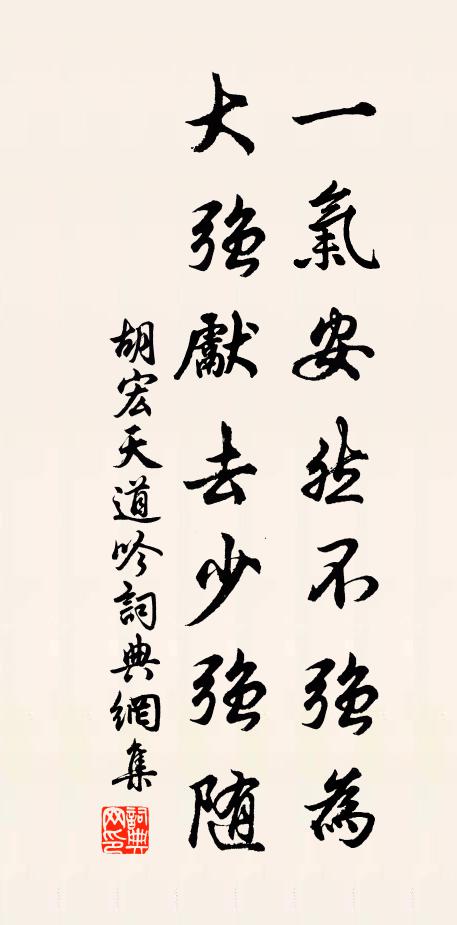 一氣安然不強為
大強獻去少強随
胡宏天道吟詞典網集
詞典網印